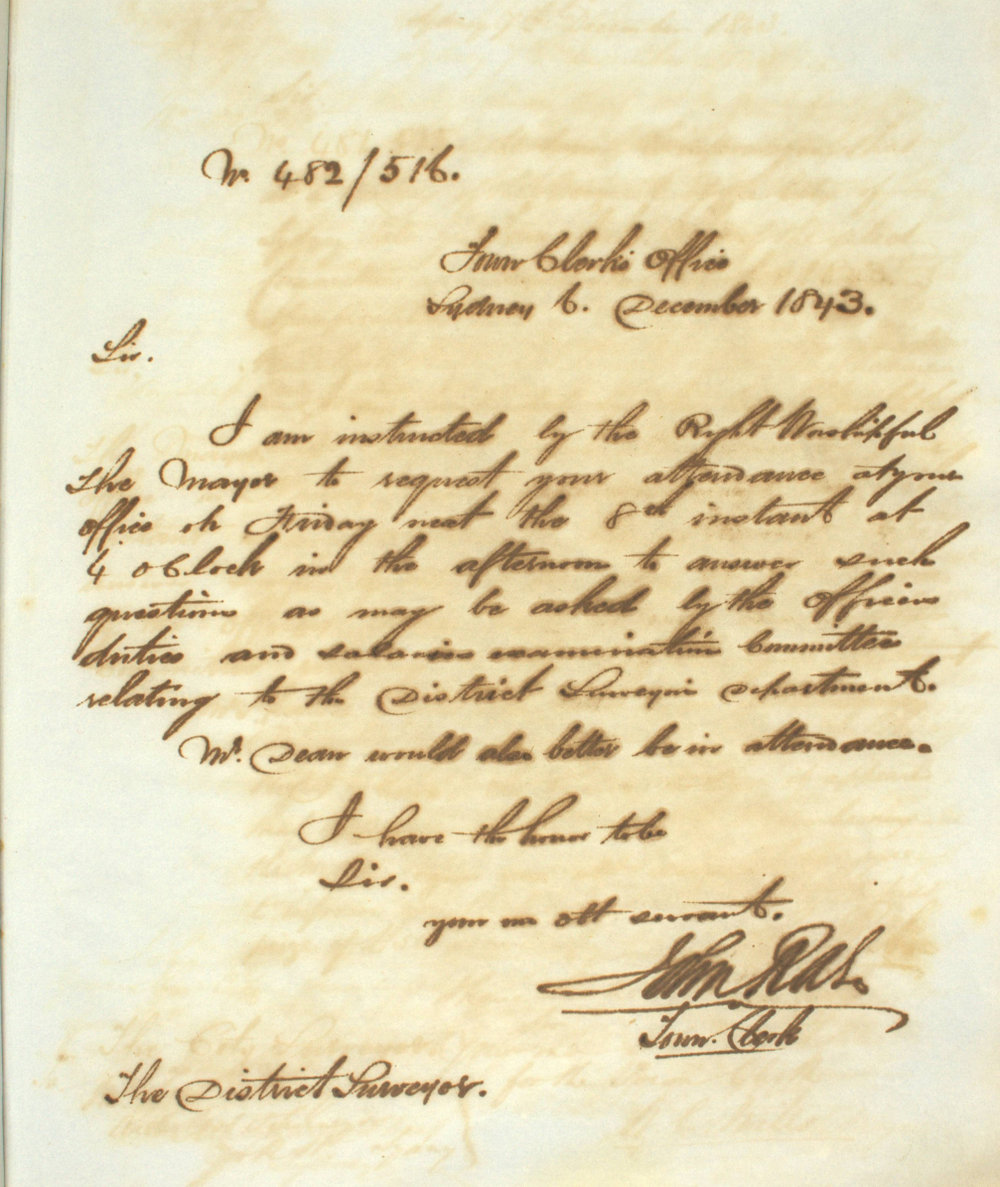 No. 482/516.
Town Clerk's Office
Sydney 6. December 1843.
Sir.
I am instructed by the Right Worshipful
The Mayor to request your attendance at your
office on Friday next the 8th instant at
4 oClock in the afternoon to answer such
questions as may be asked by the Officers
duties and salaries examination Committee
relating to the District Surveyors Department.
Mr. Dean would also better be in attendance.
I have the honor to be
Sir.
your mo obt servant.
John
Town Clerk
The District Surveyor.